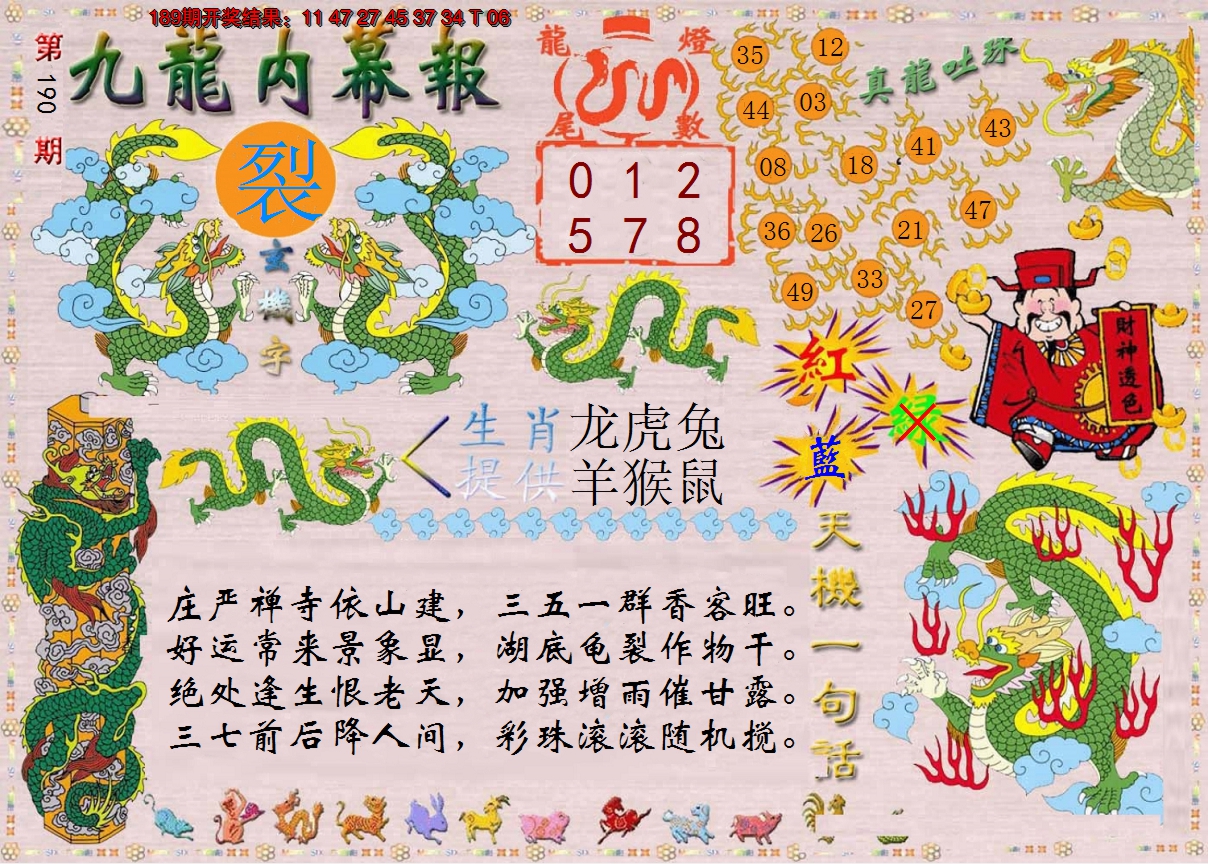 189期开奖结果：11 47 27 45 37 34 T 06
第190期
九龍内幕報
裂
玄機字
龍燈尾數
0 1 2
5 7 8
真龍吐珠
35 12
44 03
08 18 41 43
36 26 21 47
49 33 27
財神透色
紅
绿
藍
生肖提供
龙虎兔
羊猴鼠
天機一句話
庄严禅寺依山建，三五一群香客旺。
好运常来景象显，湖底龟裂作物干。
绝处逢生恨老天，加强增雨催甘露。
三七前后降人间，彩珠滚滚随机搅。